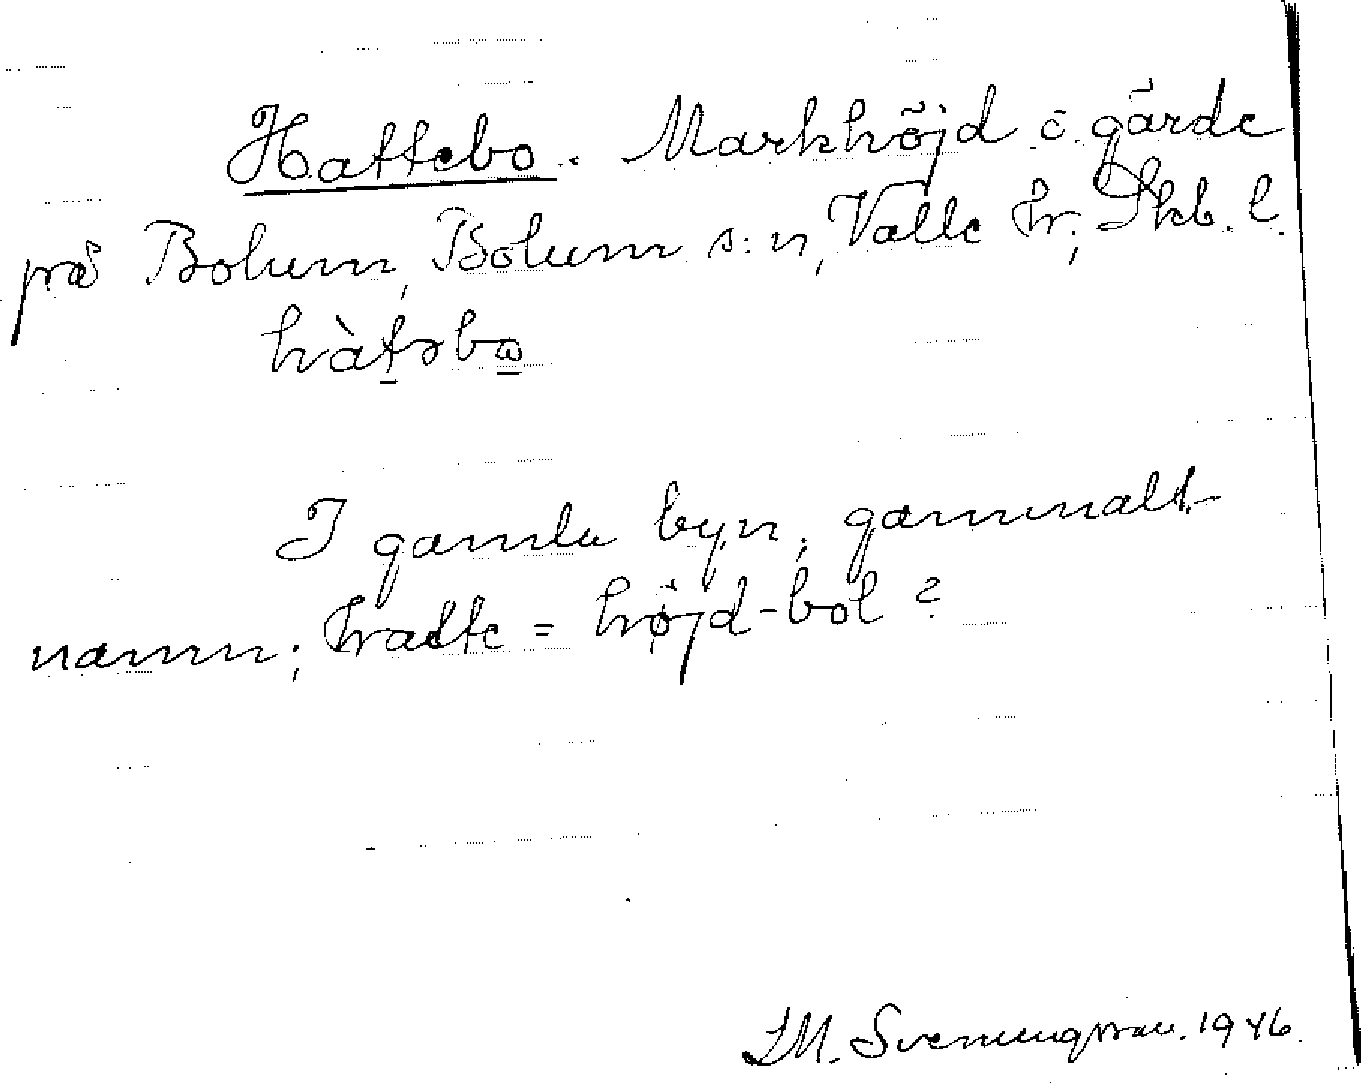 Hattebo. Markhöjd o. gärde
på Bolum, Bolum s:n, Valle hr; Skb. l.
hàtəbo
I gamla byn; gammalt
namn; hatte = höjd-bol?
SM. Svenungsson. 1946.